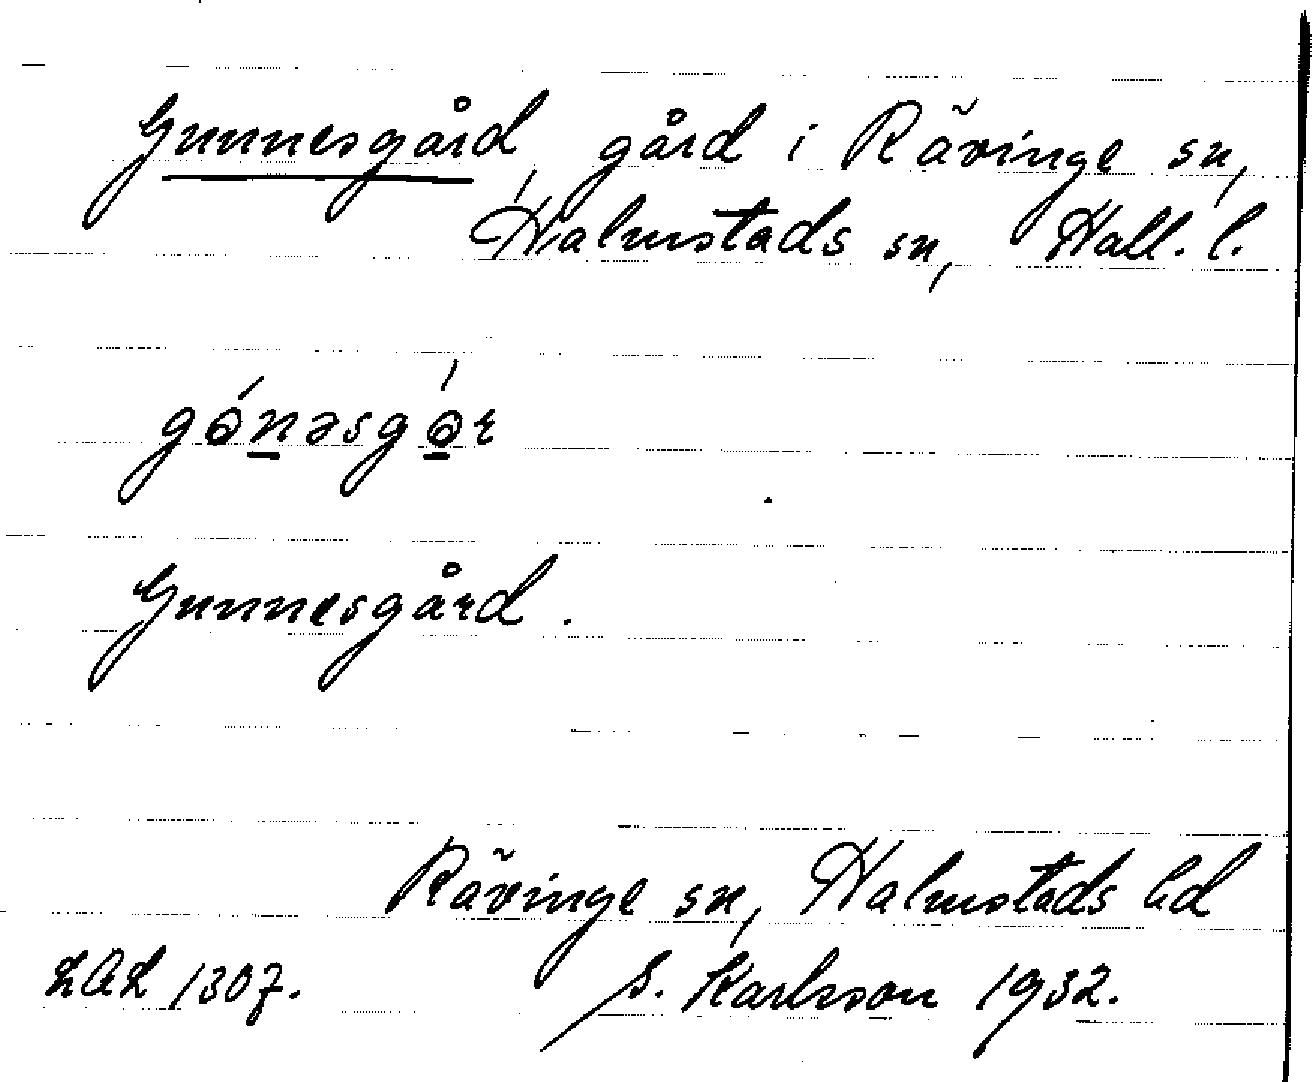 Gunnesgård, gård i Rävinge sn,
Halmstads sn, Hall. l.
Gunnesgård.
Rävinge sn, Halmstads hd
LAL 1307. S. Karlsson 1932.